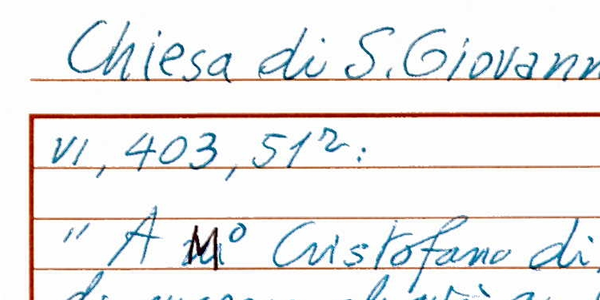 Chiesa di S. Giovann
VI, 403, 51r:
" A M° Cristofano di